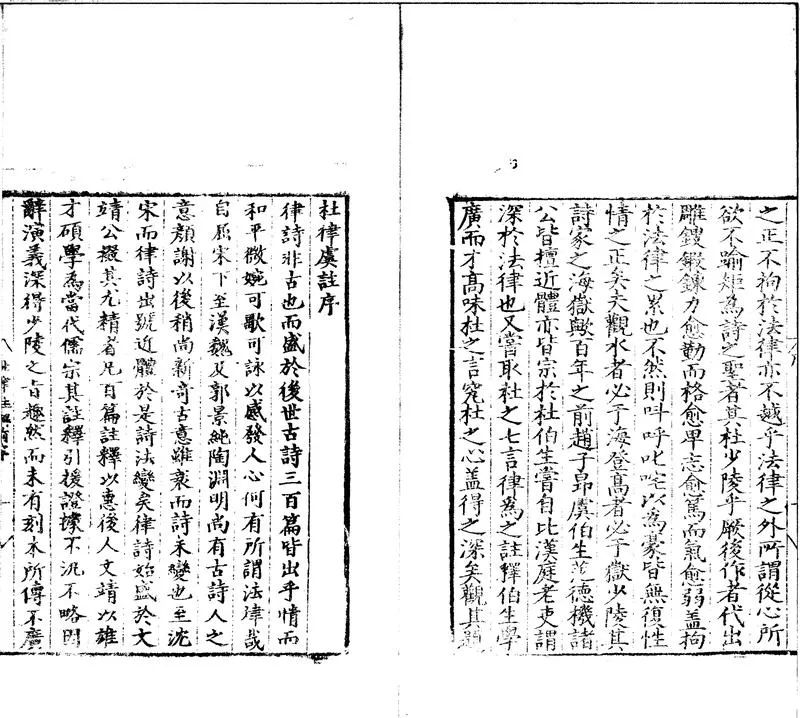 之正不拘於法律亦不越乎法律之外所謂從心所
欲不踰矩為詩之聖者其杜少陵乎厥後作者代出
雕鎪鍛鍊力愈勤而格愈卑志愈篤而氣愈弱盖拘
於法律之累也不然則叫呼叱咤以為豪皆無復性
情之正矣夫觀水者必于海登髙者必于嶽少陵其
詩家之海嶽歟百年之前趙子昻虞伯生范德機諸
公皆擅近體亦皆宗於杜伯生嘗自比漢庭老吏謂
深於法律也又嘗取杜之七言律為之註釋伯生學
廣而才髙味杜之言究杜之心盖得之深矣觀其題
杜律虞註序
律詩非古也而盛於後世古詩三百篇皆出乎情而
和平微婉可歌可詠以感發人心何有所謂法律哉
自屈宋下至漢魏及郭景純陶淵明尚有古詩人之
意顔謝以後稍尚新奇古意雖衰而詩未變也至沈
宋而律詩出號近體於是詩法變矣律詩始盛於文
靖公掇其尤精者凡百篇註釋以惠後人文靖以雄
才碩學為當代儒宗其註釋引援證據不泛不略因
辭演義深得少陵之旨趣然而未有刻本所傳不廣